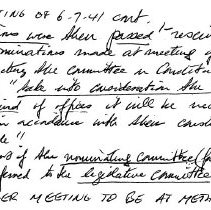 TING OF 6-7-41 cont.
were then passed - rescin
nominations made at meeting of
cting the Committee on Constitu
"take into consideration the
ind of offices it will be nec
in accordance with their const
"
of the nominating committee (
ferred to the legislative committee
ER MEETING TO BE AT METH